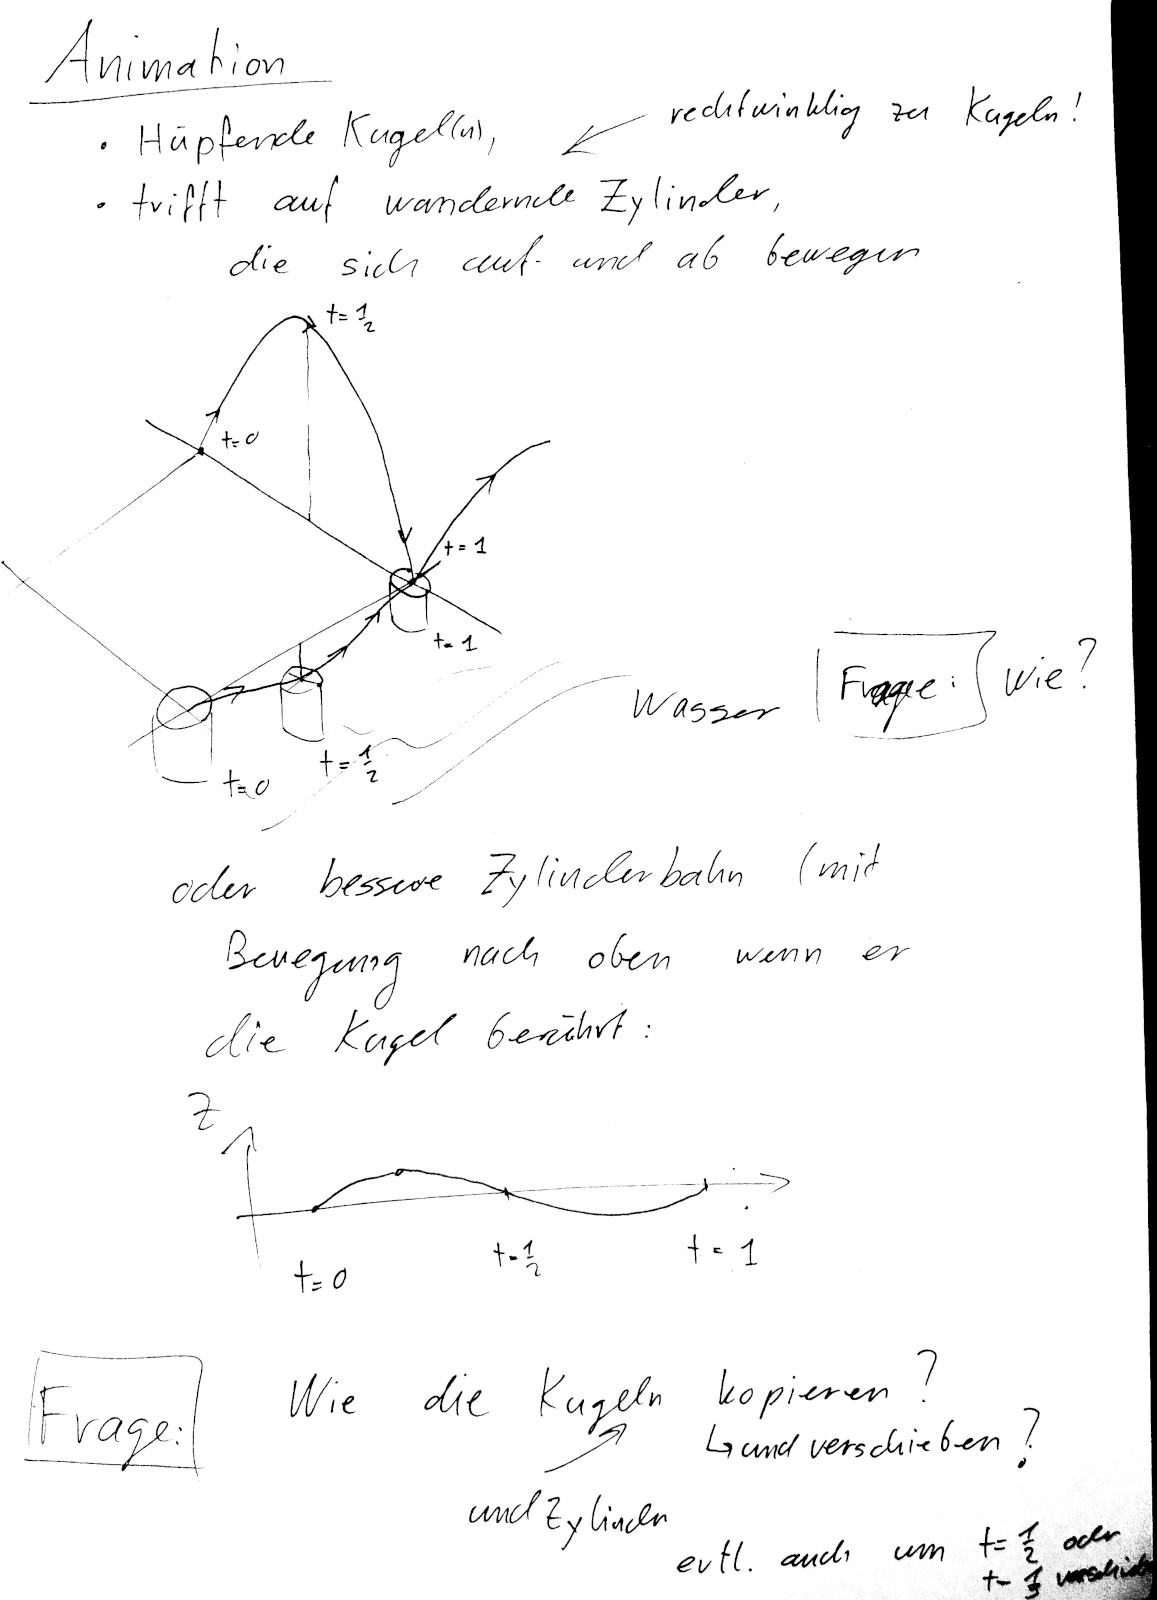 Animation
rechtwinklig zu Kugeln!
• Hüpfende Kugel(n),
• trifft auf wandernde Zylinder,
die sich auf- und ab bewegen
t=1/2
t=0
t=1
t=1
Wasser Frage: Wie?
t=1/2
t=0
oder bessere Zylinderbahn (mit
Bewegung nach oben wenn er
die Kugel berührt:
Z
t=0 t=1/2 t=1
Frage: Wie die Kugeln kopieren?
↳ und verschieben?
und Zylinder
evtl. auch um t=1/2 oder
t=1/3